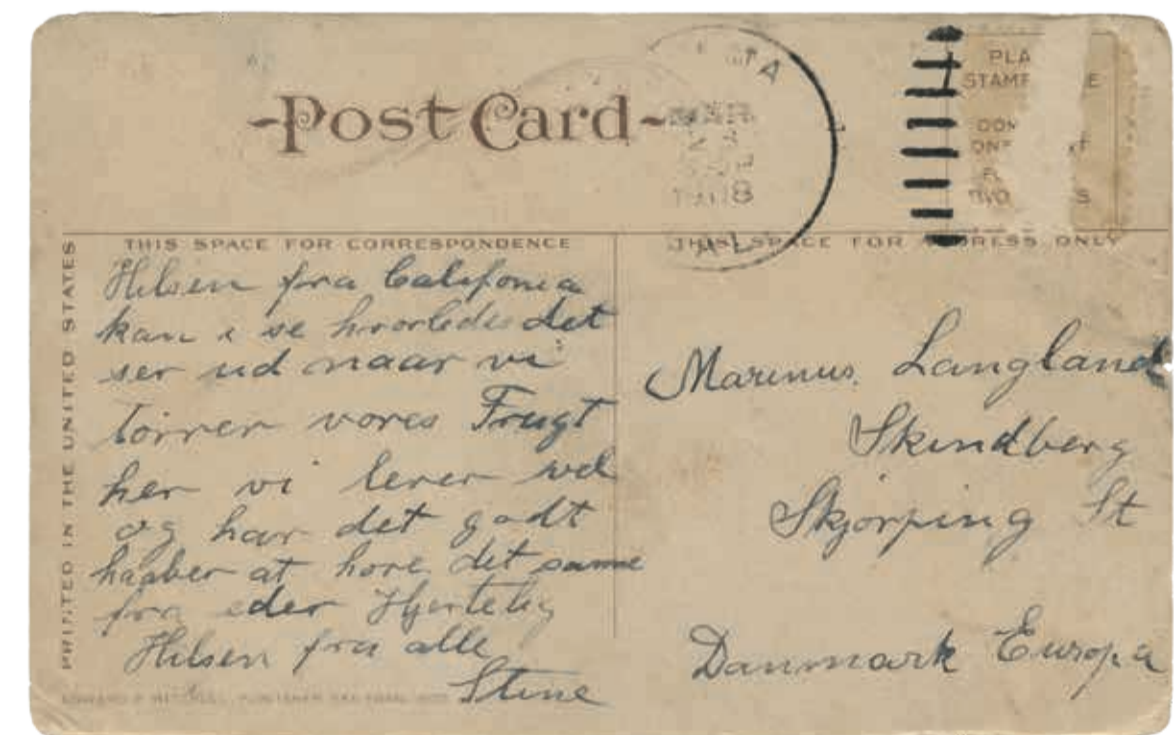 Post Card
TA
MAR
1908
CAL
PLA
STAMP E
TWO S
THIS SPACE FOR CORRESPONDENCE
THIS SPACE FOR ADDRESS ONLY
PRINTED IN THE UNITED STATES
Hilsen fra Califonia
kan i se hvorledes det
ser ud naar vi
törrer vores Frugt
her vi lever vel
og har det godt
haaber at hore det samme
fra eder Hjertelig
Hilsen fra alle
Stine
Marinus Langland
Skindberg
Skjörping St
Danmark Europa
EDWARD H MITCHELL, PUBLISHER SAN FRANCISCO